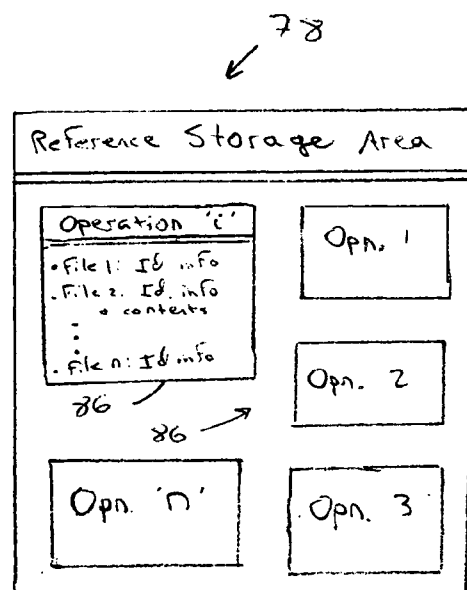 78
Reference Storage Area
Operation 'i'
• File 1: Id info
• File 2: Id. info
+ contents
• File n: Id info
86
86
Opn. 1
Opn. 2
Opn. 'n'
Opn. 3